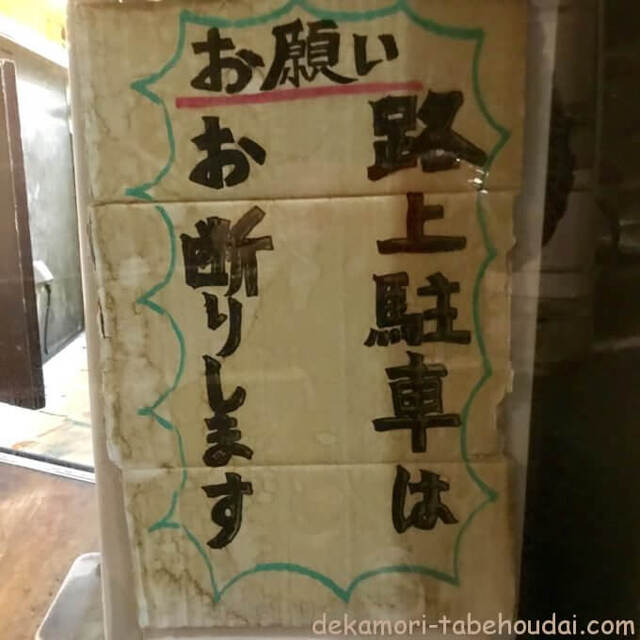 お願い
路上駐車は
お断りします
dekamori-tabehoudai.com